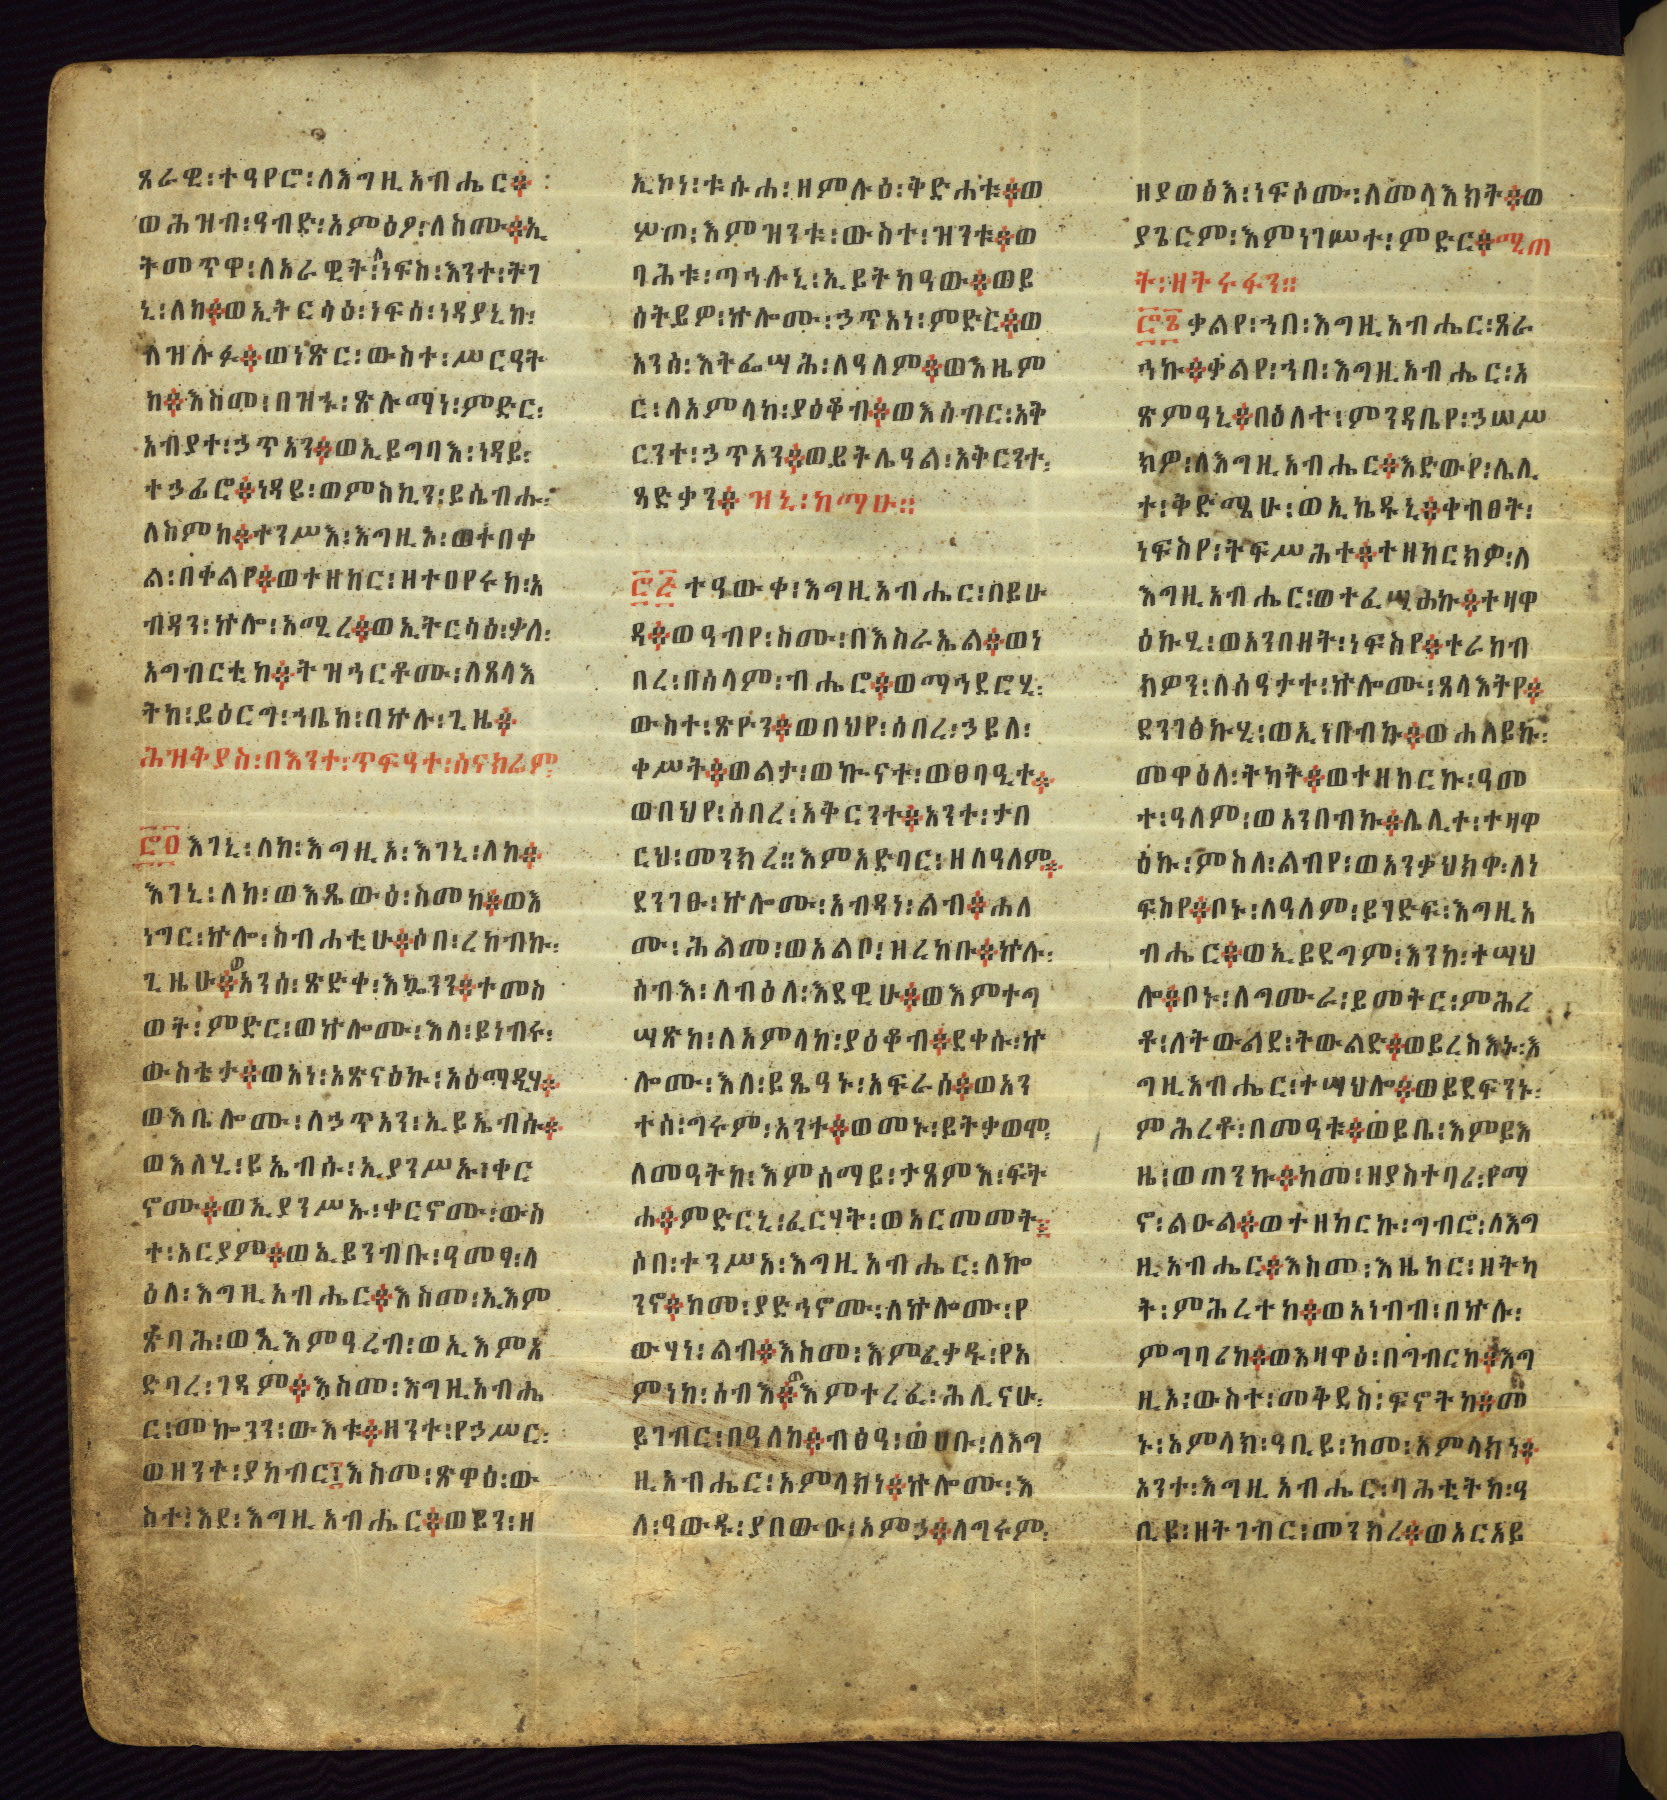 ጸራዊ፡ተዓየሮ፡ለእግዚአብሔር፨
ወሕዝብ፡ዓብድ፡አምዕዖ፡ለስሙ፨ኢ
ትመጥዋ፡ለአራዊት፡ነፍስ፡እንተ፡ትገ
ኒ፡ለከ፨ወኢትርሳዕ፡ነፍሰ፡ነዳያኒከ፡
ለዝሉፉ፨ወነጽር፡ውስተ፡ሥርዓት
ከ፨እስመ፡በዝኁ፡ጽሉማነ፡ምድር፡
አብያተ፡ኃጥአን፨ወኢይግባእ፡ነዳይ፡
ተኃፊሮ፨ነዳይ፡ወምስኪን፡ይሴብሑ፡
ለስምከ፨ተንሥእ፡እግዚኦ፡ወተበቀ
ል፡በቀልየ፨ወተዘከር፡ዘተዐየሩከ፡አ
ብዳን፡ኵሎ፡አሚረ፨ወኢትርሳዕ፡ቃለ፡
አግብርቲከ፨ትዝኅርቶሙ፡ለጸላእ
ትከ፡ይዕርግ፡ኀቤከ፡በኵሉ፡ጊዜ፨
ሕዝቅያስ፡በእንተ፡ጥፍዓተ፡ሰናክሬም
፸፬ እገኒ፡ለከ፡እግዚአ፡እገኒ፡ለከ፨
እገኒ፡ለከ፡ወእጼውዕ፡ስመከ፨ወእ
ነግር፡ኵሎ፡ስብሐቲሁ፨ሶበ፡ረከብኩ፡
ጊዜሁ፨አንሰ፡ጽድቀ፡እኴንን፨ተመስ
ወት፡ምድር፡ወኵሎሙ፡እለ፡ይነብሩ፡
ውስቴታ፨ወአነ፡አጽናዕኩ፡አዕማዲሃ፨
ወእቤሎሙ፡ለኃጥአን፡ኢይኤብሱ፨
ወእለሂ፡ይኤብሱ፡ኢያንሥኡ፡ቀር
ኖሙ፨ወኢያንሥኡ፡ቀርኖሙ፡ውስ
ተ፡አርያም፨ወኢይንብቡ፡ዓመፃ፡ላ
ዕለ፡እግዚአብሔር፨እስመ፡ኢእም
ጽባሕ፡ወኢእምዓረብ፡ወኢእምአ
ድባረ፡ገዳም፨እስመ፡እግዚአብሔ
ር፡መኰንን፡ውእቱ፨ዘንተ፡የኃሥር፡
ወዘንተ፡ያከብር፡እስመ፡ጽዋዕ፡ው
ስተ፡እደ፡እግዚአብሔር፨ወይን፡ዘ
ኢኮነ፡ቱሱሐ፡ዘምሉዕ፡ቅድሐቱ፨ወ
ሦጠ፡እምዝንቱ፡ውስተ፡ዝንቱ፨ወ
ባሕቱ፡ጣኅሉኒ፡ኢይትከዓው፨ወይ
ሰትይዎ፡ኵሎሙ፡ኃጥአነ፡ምድር፨ወ
አንሰ፡እትፌሣሕ፡ለዓለም፨ወእዜም
ር፡ለአምላከ፡ያዕቆብ፨ወእሰብር፡አቅ
ርንተ፡ኃጥአን፨ወይትሌዓል፡አቅርንተ፡
ጻድቃን፨ ዝኒ፡ከማሁ።
፸፭ ተዓውቀ፡እግዚአብሔር፡በይሁ
ዳ፨ወዓብየ፡ስሙ፡በእስራኤል፨ወነ
በረ፡በሰላም፡ብሔሮ፨ወማኅደሮሂ፡
ውስተ፡ጽዮን፨ወበህየ፡ሰበረ፡ኃይለ፡
ቀሥት፨ወልታ፡ወኲናተ፡ወፀባዒተ፨
ወበህየ፡ሰበረ፡አቅርንተ፨አንተ፡ታበ
ርህ፡መንክረ።እምአድባር፡ዘለዓለም፨
ደንገፁ፡ኵሎሙ፡አብዳነ፡ልብ፨ሐለ
ሙ፡ሕልመ፡ወአልቦ፡ዘረከቡ፨ኵሉ፡
ሰብእ፡ለብዕለ፡እደዊሁ፨ወእምተግ
ሣጽከ፡ለአምላከ፡ያዕቆብ፨ደቀሱ፡ኵ
ሎሙ፡እለ፡ይጼዓኑ፡አፍራሰ፨ወአን
ተሰ፡ግሩም፡አንተ፨ወመኑ፡ይትቃወሞ፡
ለመዓትከ፡እምሰማይ፡ታጸምእ፡ፍት
ሐ፨ምድርኒ፡ፈርሃት፡ወአርመመት፨
ሶበ፡ተንሥአ፡እግዚአብሔር፡ለኰ
ንኖ፨ከመ፡ያድኅኖሙ፡ለኵሎሙ፡የ
ውሃነ፡ልብ፨እስመ፡እምፈቃዱ፡የአ
ምነከ፡ሰብእ፨እምተረፈ፡ሕሊናሁ፡
ይገብር፡በዓለከ፨ብፅዓ፡ወሀቡ፡ለእግ
ዚአብሔር፡አምላክነ፨ኵሎሙ፡እ
ለ፡ዓውዱ፡ያበውዑ፡አምኃ፨ለግሩም፡
ዘያወፅእ፡ነፍሶሙ፡ለመላእክት፨ወ
ያጌርም፡እምነገሥተ፡ምድር፨ሚጠ
ት፡ዘትሩፋን።
፸፮ ቃልየ፡ኀበ፡እግዚአብሔር፡ጸራ
ኅኩ፨ቃልየ፡ኀበ፡እግዚአብሔር፡አ
ጽምዓኒ፨በዕለተ፡ምንዳቤየ፡ኃሠሥ
ክዎ፡ለእግዚአብሔር፨እድውየ፡ሌሊ
ተ፡ቅድሜሁ፡ወኢኬዱኒ፨ቀብፀት፡
ነፍስየ፡ትፍሥሕተ፨ተዘከርክዎ፡ለ
እግዚአብሔር፡ወተፈሣሕኩ፨ተዛዋ
ዕኩሂ፡ወአንበዘት፡ነፍስየ፨ተራከብ
ክዎን፡ለሰዓታተ፡ኵሎሙ፡ጸላእትየ፨
ደንገፅኩሂ፡ወኢነበብኩ፨ወሐለይኩ፡
መዋዕለ፡ትካት፨ወተዘከርኩ፡ዓመ
ተ፡ዓለም፡ወአንበብኩ፨ሌሊተ፡ተዛዋ
ዕኩ፡ምስለ፡ልብየ፡ወአንቃህክዋ፡ለነ
ፍስየ፨ቦኑ፡ለዓለም፡ይገድፍ፡እግዚአ
ብሔር፨ወኢይደግም፡እንከ፡ተሣህ
ሎ፨ቦኑ፡ለግሙራ፡ይመትር፡ምሕረ
ቶ፡ለትውልደ፡ትውልድ፨ወይረስእኑ፡እ
ግዚአብሔር፡ተሣህሎ፨ወይደፍንኑ፡
ምሕረቶ፡በመዓቱ፨ወይቤ፡እምይእ
ዜ፡ወጠንኩ፨ከመ፡ዘያስተባሪ፡የማ
ኖ፡ልዑል፨ወተዘከርኩ፡ግብሮ፡ለእግ
ዚአብሔር፨እስመ፡እዜከር፡ዘትካ
ት፡ምሕረተከ፨ወአነብብ፡በኵሉ፡
ምግባሪከ፨ወእዛዋዕ፡በግብርከ፨እግ
ዚኦ፡ውስተ፡መቅደስ፡ፍኖትከ፨መ
ኑ፡አምላክ፡ዓቢይ፡ከመ፡አምላክነ፨
አንተ፡እግዚአብሔር፡ባሕቲትከ፡ዓ
ቢይ፡ዘትገብር፡መንክረ፨ወአርአይ